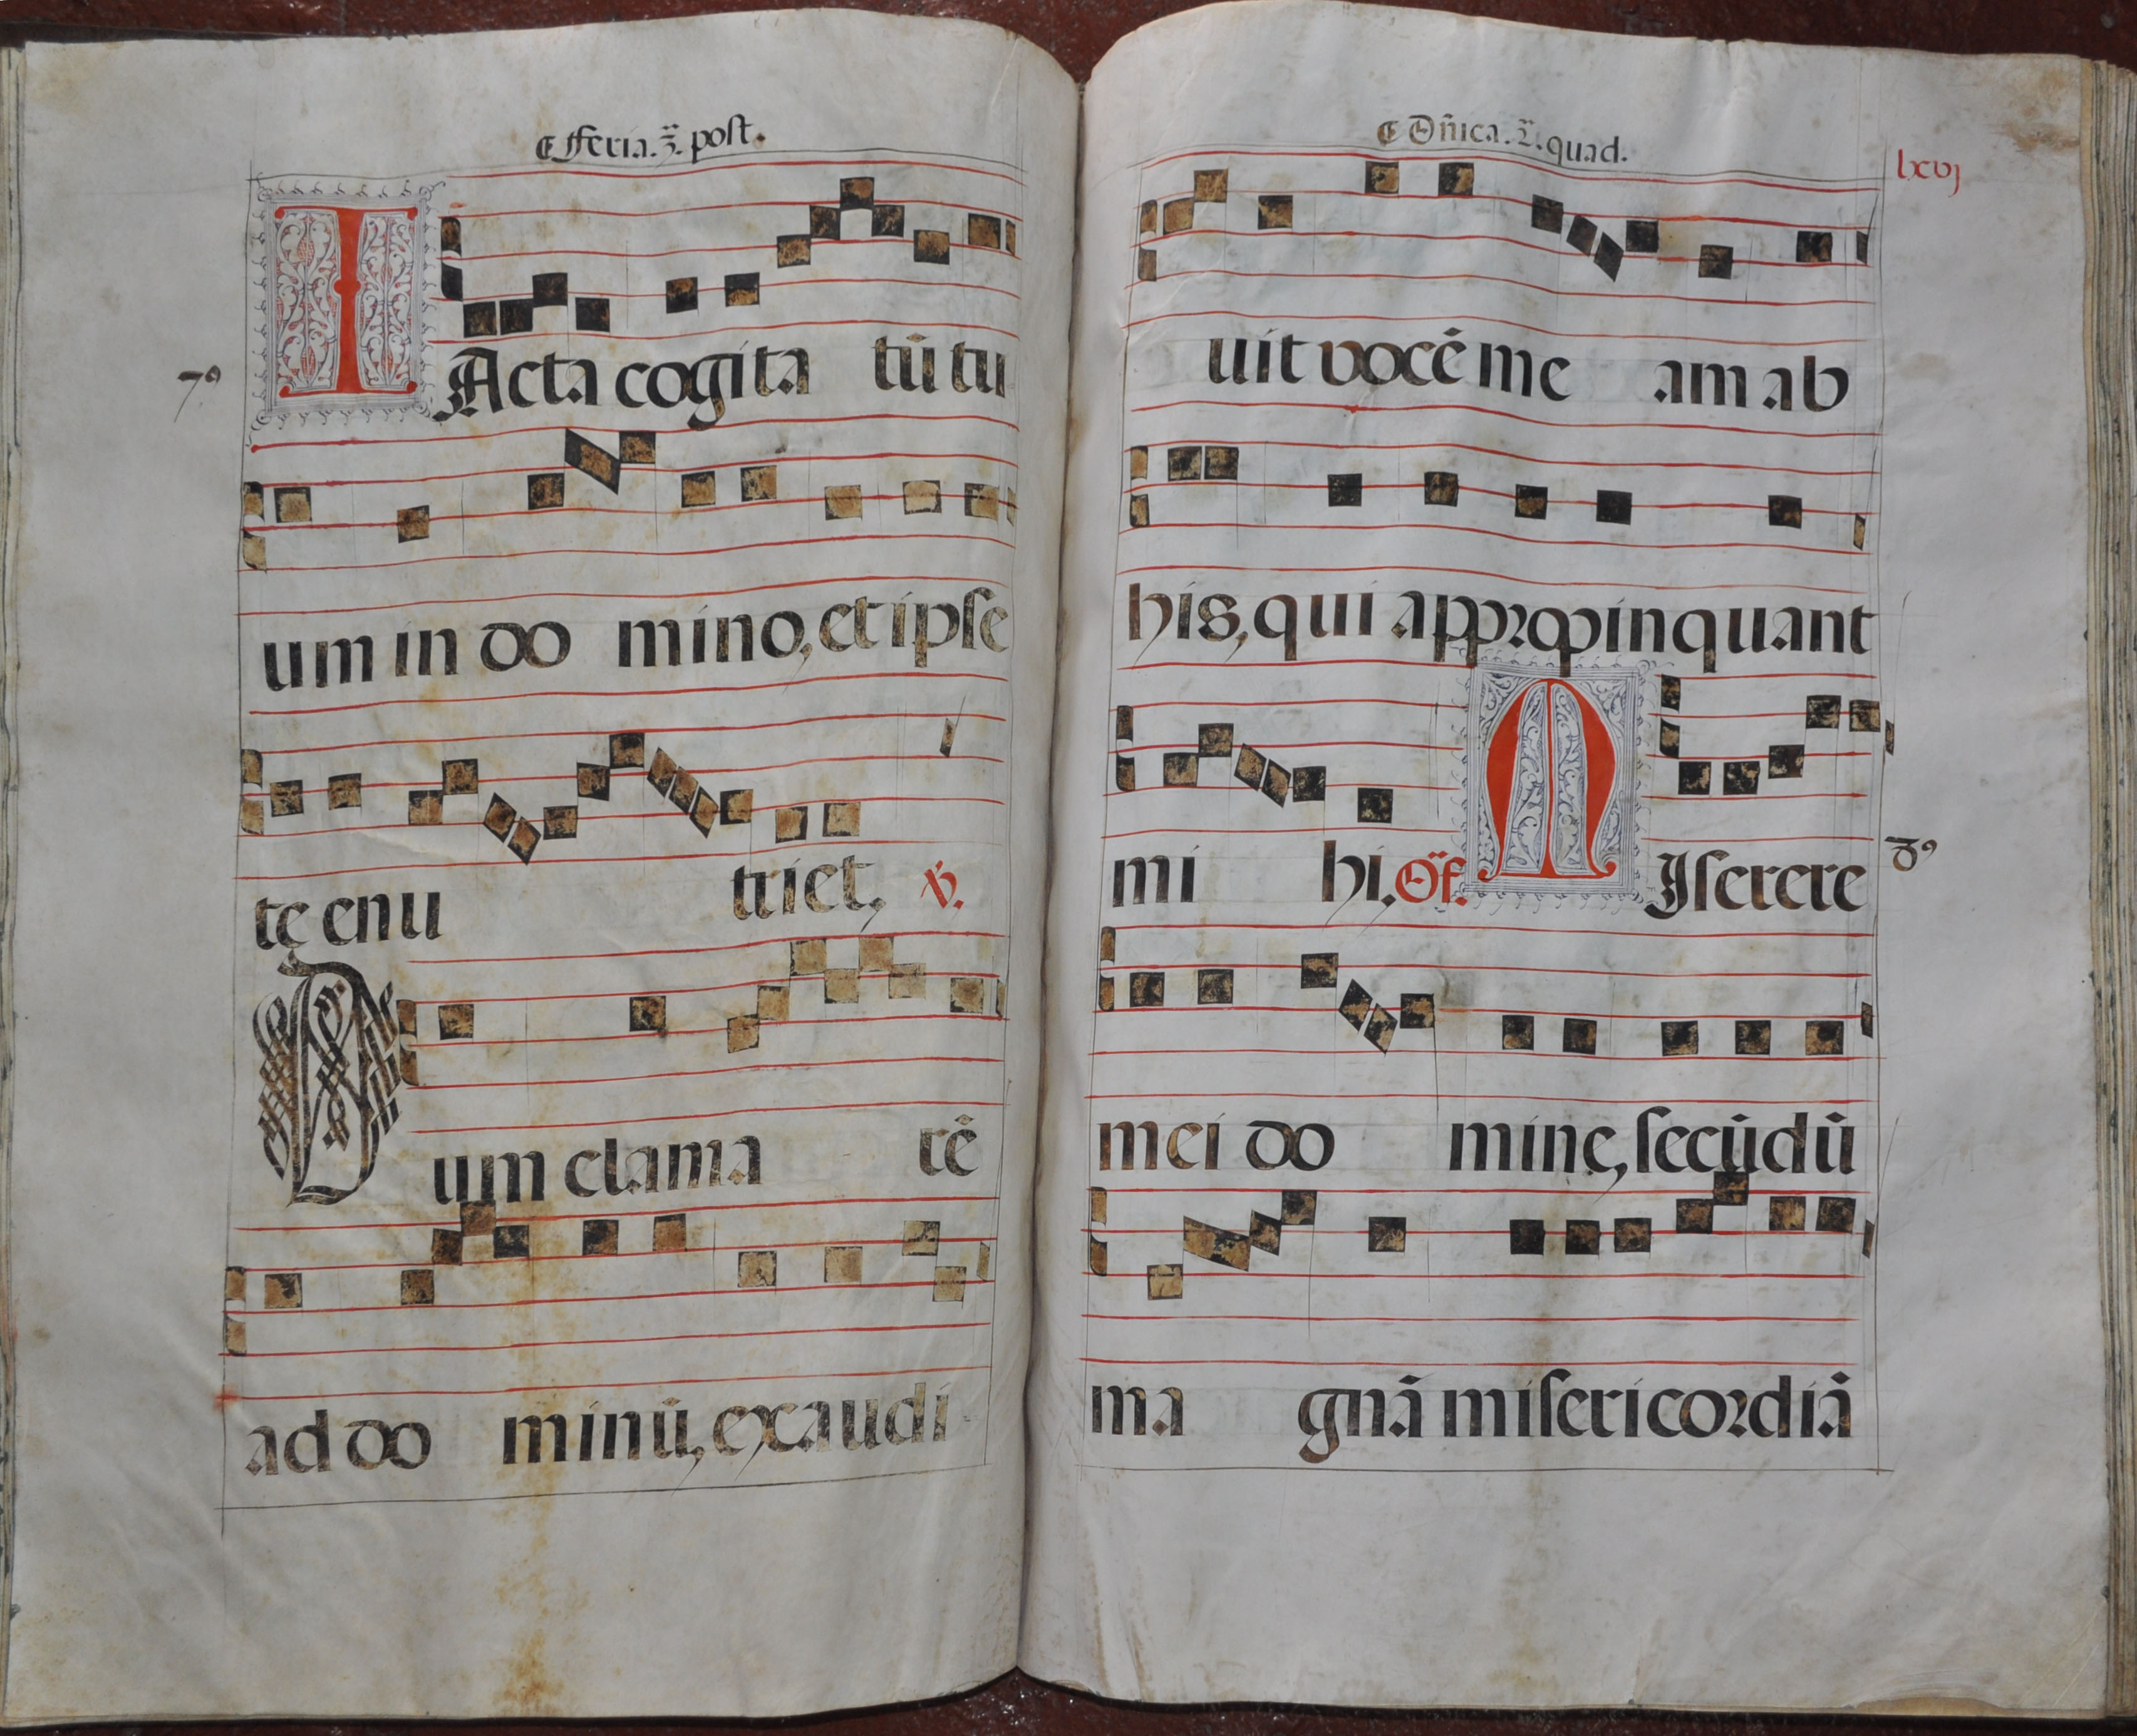 Feria. 3ª. post.
7º
IActa cogita tū tu
um in do mino, et ipse
te enu triet, ℣.
Dum clama tē
ad do minū, exaudi
Dñica. 2ª. quad.
lxvj
uit vocē me am ab
his, qui appropinquant
mi hi, Of. MIserere
mei do mine, secūdū
ma gnā misericordiā